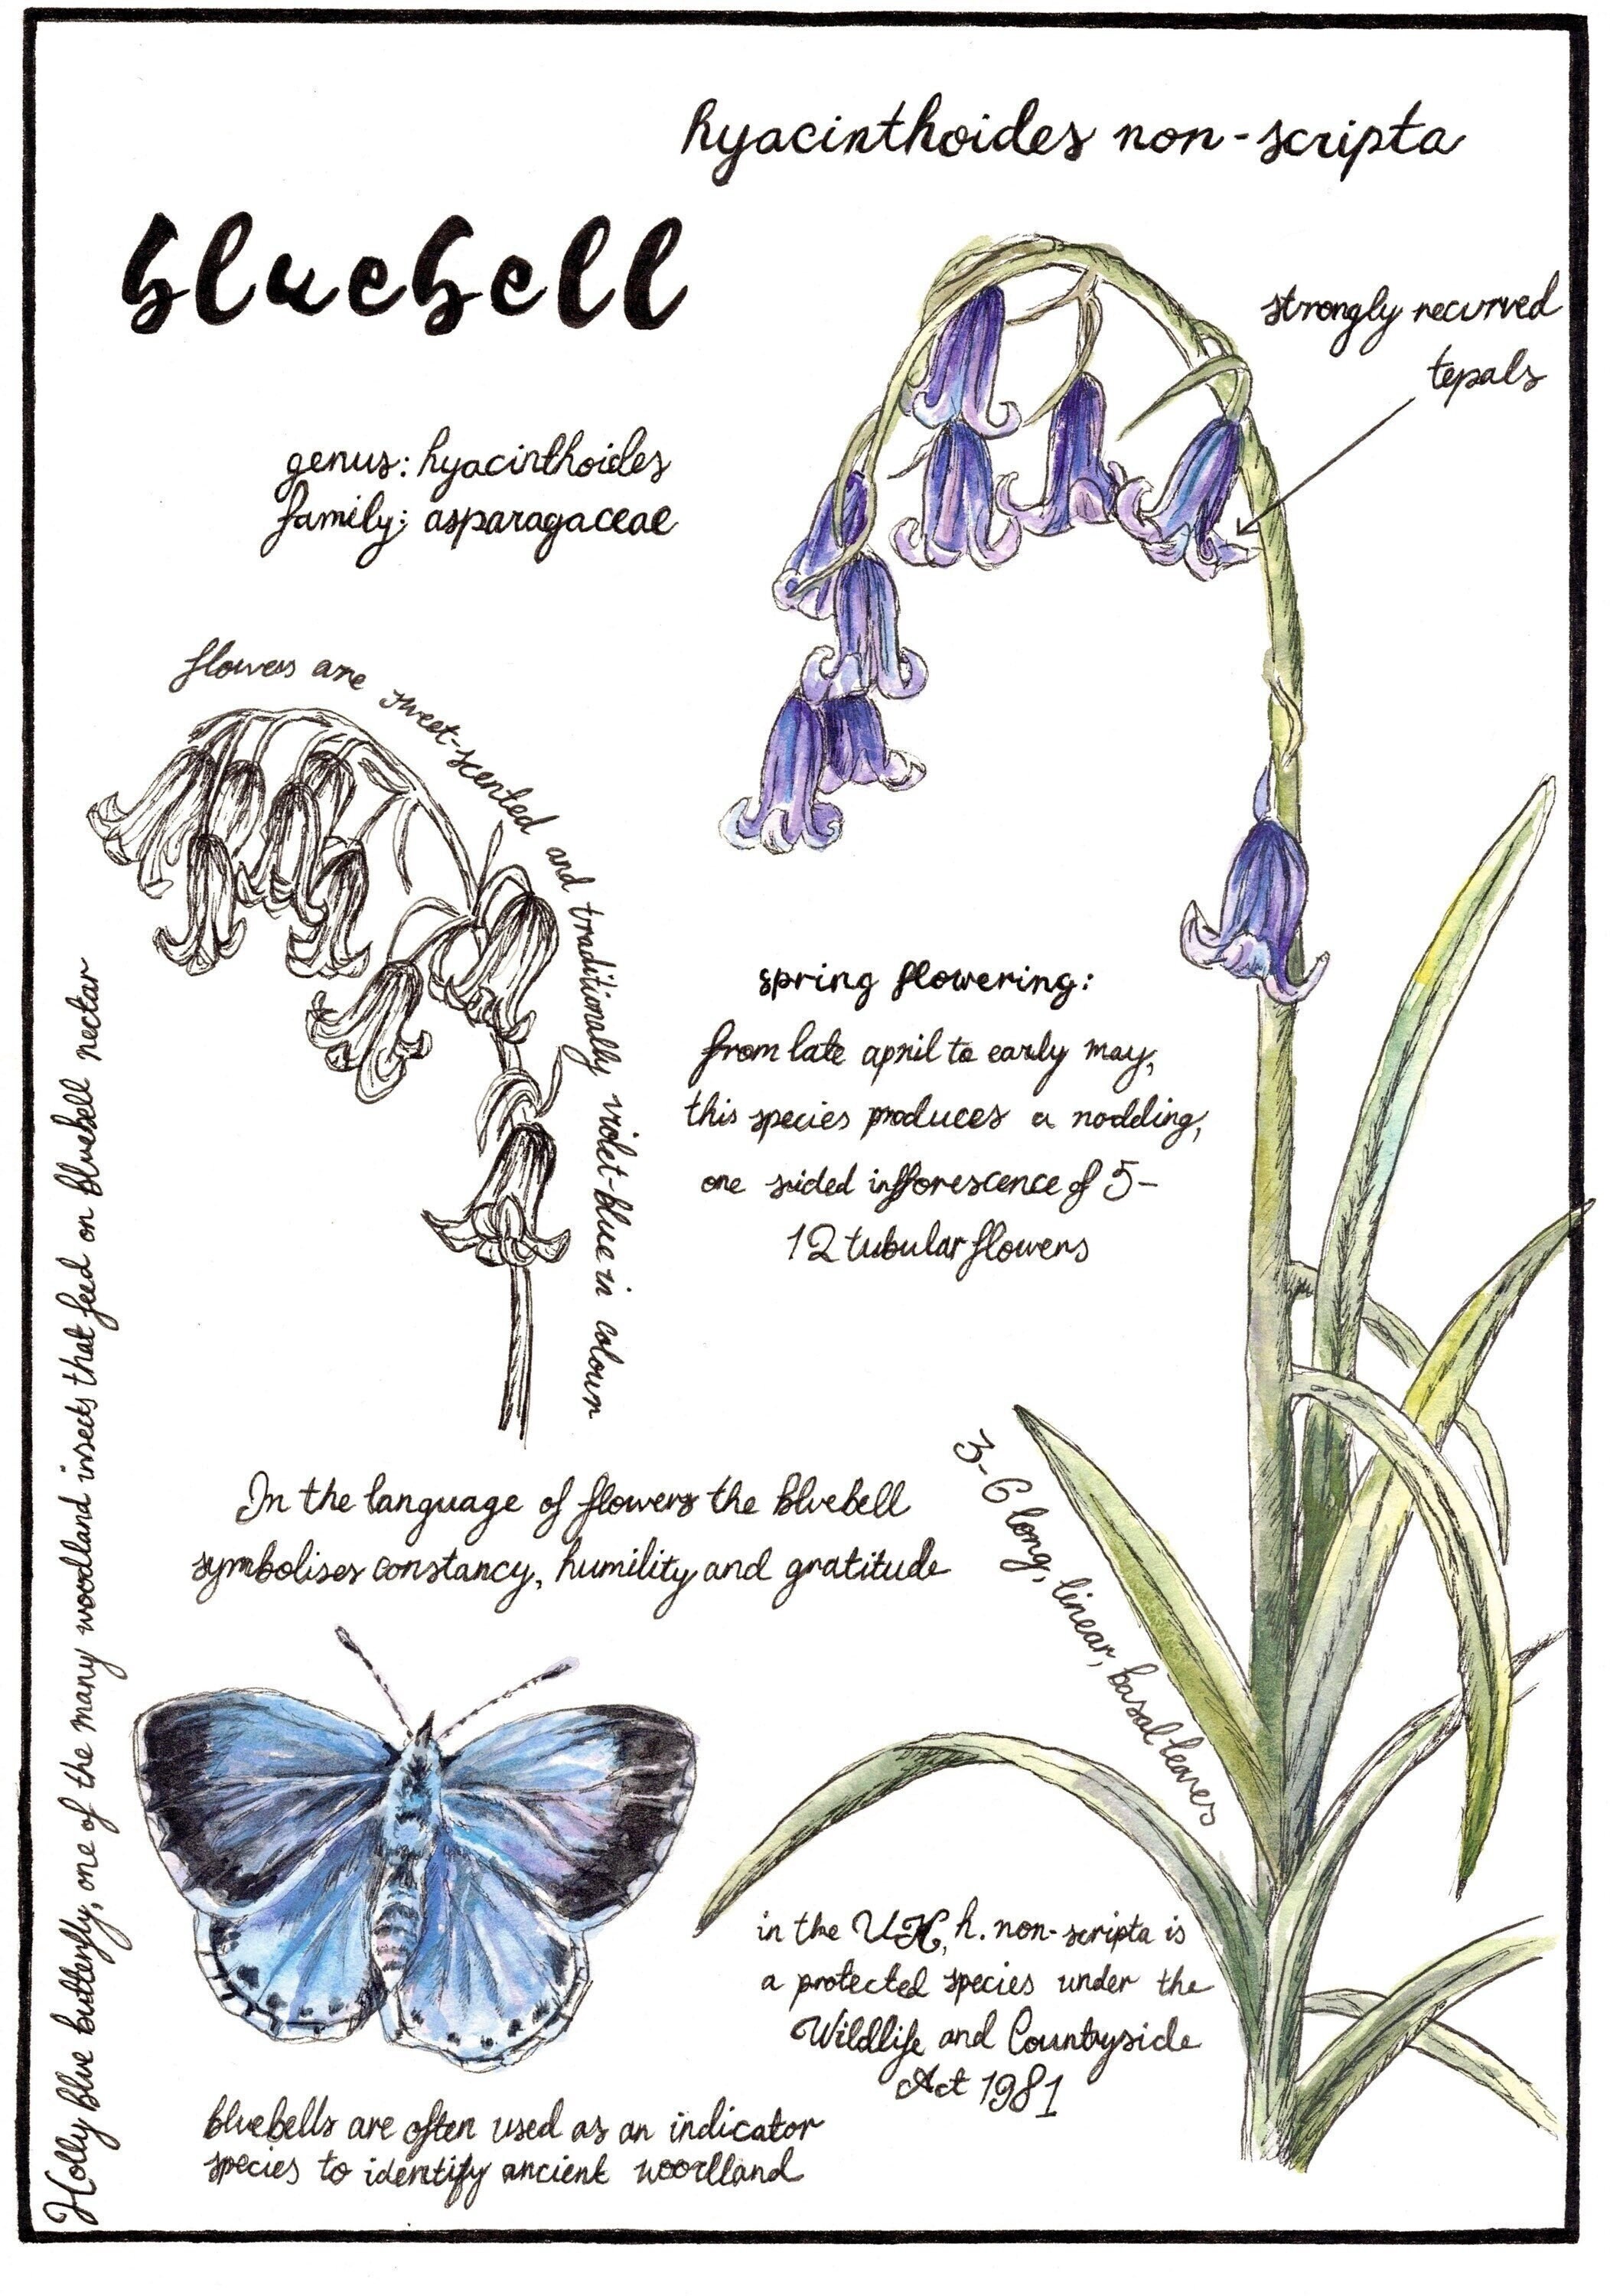 hyacinthoides non-scripta
bluebell
strongly recurved
tepals
genus: hyacinthoides
family: asparagaceae
flowers are sweet-scented and traditionally violet-blue in colour
spring flowering:
from late april to early may,
this species produces a nodding,
one sided inflorescence of 5-
12 tubular flowers
Holly blue butterfly, one of the many woodland insects that feed on bluebell nectar
In the language of flowers the bluebell
symbolises constancy, humility and gratitude
3-6 long, linear, basal leaves
in the UK, h. non-scripta is
a protected species under the
Wildlife and Countryside
Act 1981
bluebells are often used as an indicator
species to identify ancient woodland